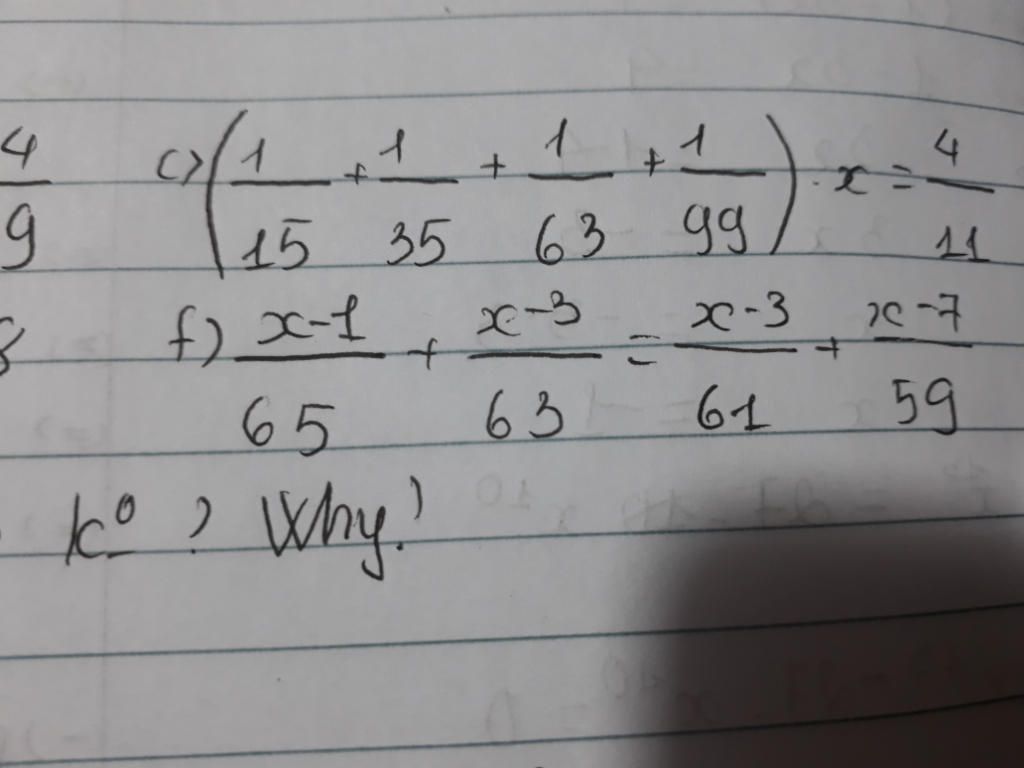 4/9 c) (1/15 + 1/35 + 1/63 + 1/99) . x = 4/11
f) x-1/65 + x-3/63 = x-3/61 + x-7/59
? Why?